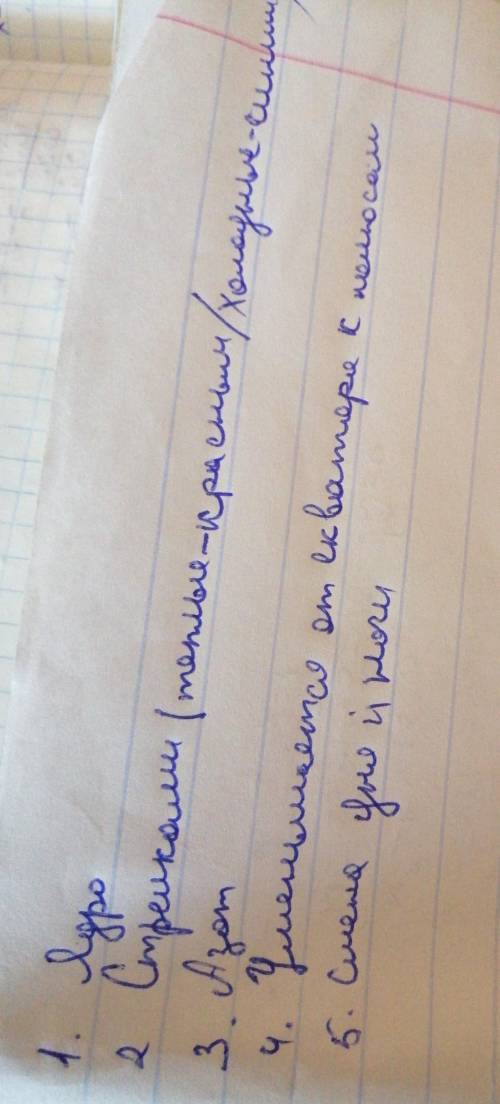 1. Ядро
2 Стрелками (теплые-красным/холодные-синим)
3. Азот
4. Уменьшается от екватора к полюсам
5. Смена дня и ночи